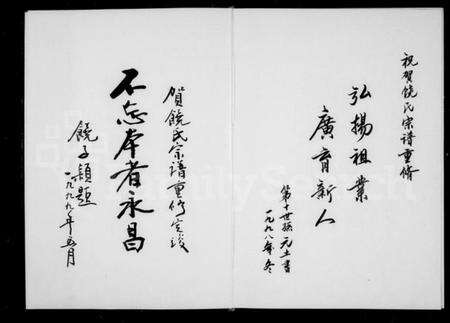 祝贺饶氏宗谱重修
弘揚祖業
廣育新人
第十世孫 元土書
一九九八年冬
贺饶氏宗谱重修完竣
不忘本者永昌
饶子頴题
一九九九年五月
FamilySearch